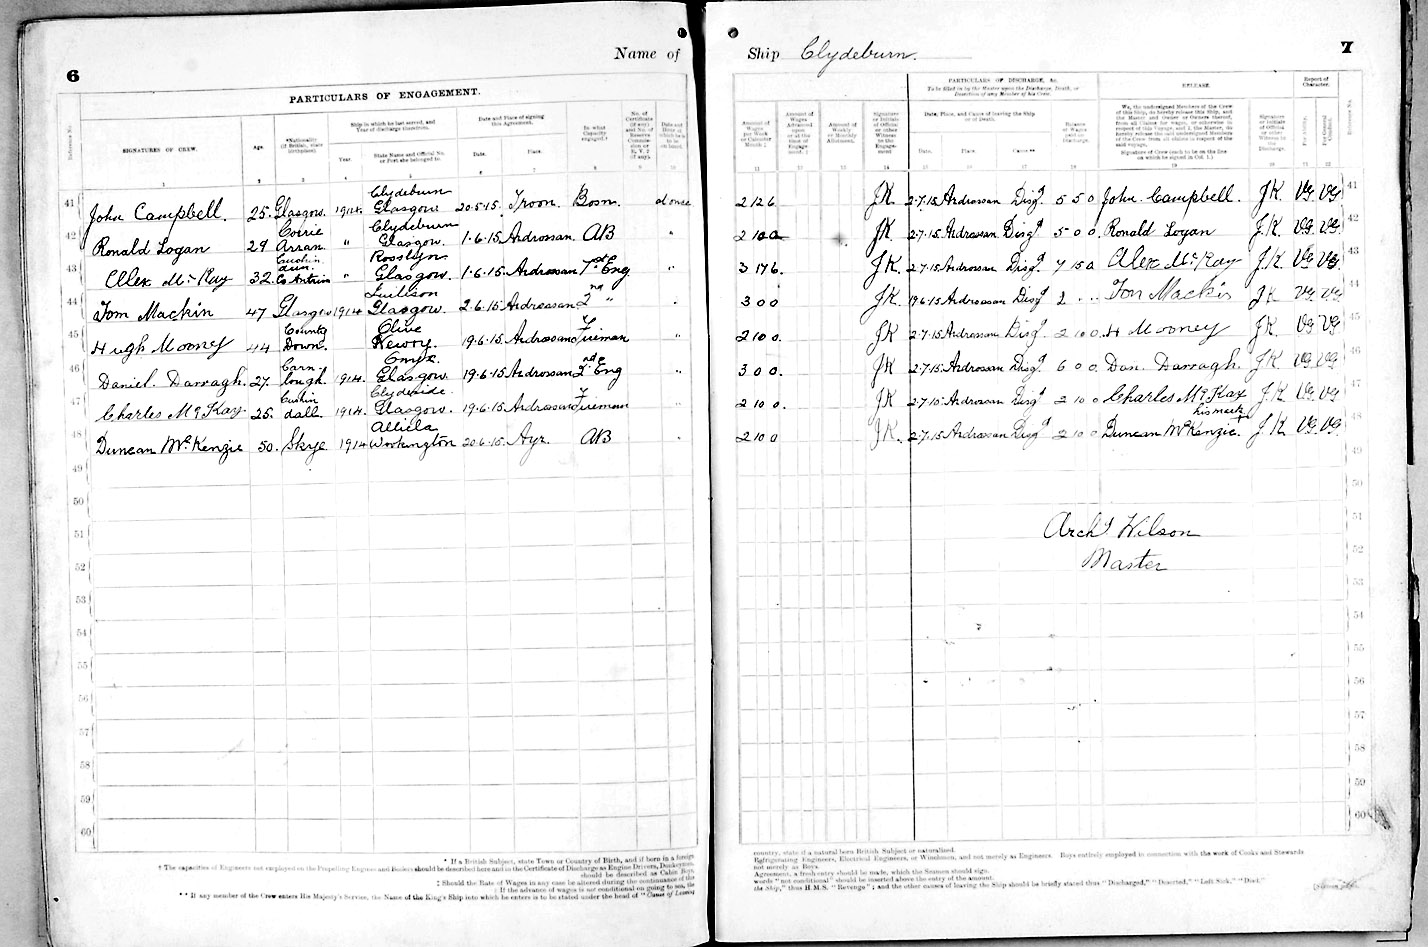 6
Name of
PARTICULARS OF ENGAGEMENT.
SIGNATURES OF CREW.
Age.
*Nationality (if British, state birthplace).
Ship in which he last served, and Year of discharge therefrom.
Year.
State Name and Official No. or Port she belonged to.
Date and Place of signing this Agreement.
Date.
Place.
In what Capacity engaged.†
No. of Certificate (if any) and No. of Reserve Commission or R.V.2 (if any).
1 2 3 4 5 6 7 8 9 10
41 John Campbell. 25. Glasgow. 1914. Clydeburn Glasgow 20.5.15. Troon. Bosn. at once
42 Ronald Logan 29 Corrie Arran. " Clydeburn Glasgow. 1.6.15. Ardrossan. AB "
43 Alex McKay 32. Cushendun. Co Antrim " Rosslyn Glasgow. 1.6.15. Ardrossan 1st Eng "
44 Tom Mackin 47 Glasgow 1914 Glasgow. 2.6.15. Ardrossan 2nd " "
45 Hugh Mooney 44 County Down. Olive Newry. 19.6.15. Ardrossan Fireman "
46 Daniel. Darragh. 27. Carnlough. 1914. Onyx. Glasgow. 19.6.15 Ardrossan 2nd Eng "
47 Charles McKay 25. Cushendall. 1914. Clydeside. Glasgow. 19.6.15 Ardrossan Fireman
48 Duncan McKenzie 50. Skye. 1914 Workington 20.6.15 Ayr. AB "
49
50
51
52
53
54
55
56
57
58
59
60
* If a British Subject, state Town or Country of Birth, and if born in a foreign
† The capacities of Engineers not employed on the Propelling Engines and Boilers should be described here and in the Certificate of Discharge as Engine Drivers, Donkeymen,
should be described as Cabin Boys.
‡ Should the Rate of Wages in any case be altered during the continuance of the
‡ If the advance of wages is not conditional on going to sea, the
** If any member of the Crew enters His Majesty's Service, the Name of the King's Ship into which he enters is to be stated under the head of "Cause of Leaving
Ship Clydeburn.
7
PARTICULARS OF DISCHARGE, &c.
To be filled in by the Master upon the Discharge, Death, or Desertion of any Member of his Crew.
RELEASE.
Report of Character.
Amount of Wages per Week or Calendar Month ‡
Amount of Wages Advanced upon or at the time of Engagement. ‡
Amount of Weekly or Monthly Allotment.
Signature or Initials of Official or other Witness to Engagement
Date, Place, and Cause of leaving the Ship or of Death.
Date.
Place.
Cause **
Balance of Wages paid on the Discharge.
We, the undersigned Members of the Crew of this Ship, do hereby release this Ship, and the Master and Owner or Owners thereof, from all Claims for wages, or otherwise in respect of this Voyage, and I, the Master, do hereby release the said undersigned Members of the Crew from all claims in respect of the said voyage.
Signature of Crew (each to be on the line on which he signed in Col. 1.)
Signature or Initials of Official or other Witness to the Discharge.
For Ability.
For General Conduct.
2 12 6 JK 2.7.15 Ardrossan Disgd 5 5 0 John. Campbell. J.K VG VG 41
2 10 0 JK 2.7.15. Ardrossan Disgd 5 0 0 Ronald Logan J.K VG VG 42
3 17 6. JK 2.7.15 Ardrossan Disgd 7 15 0 Alex McKay J.K. VG VG 43
3 0 0 JK 19.6.15 Ardrossan Disgd 2 Tom Mackin JK VG VG 44
2 10 0. JK 2.7.15. Ardrossan Disgd 2 10 0 H Mooney J.K. VG VG 45
3 0 0. JK 2.7.15. Ardrossan Disgd. 6 0 0. Dan. Darragh. JK VG VG 46
2 10 0. JK 2.7.15 Ardrossan Disgd 2 10 0 Charles McKay J.K VG VG 47
2 10 0 J.K. 2.7.15 Ardrossan Disgd 2 10 0 Duncan McKenzie. his mark + J.K VG VG 48
49
50
51
Archd Wilson
52
Master
53
54
55
56
57
58
59
60
country, state if a natural born British Subject or naturalized.
Refrigerating Engineers, Electrical Engineers, or Winchmen, and not merely as Engineers. Boys entirely employed in connection with the work of Cooks and Stewards
not merely as Boys.
Agreement, a fresh entry should be made, which the Seamen should sign.
words "not conditional" should be inserted above the entry of the amount.
the Ship," thus H.M.S. "Revenge"; and the other causes of leaving the Ship should be briefly stated thus "Discharged," "Deserted," "Left Sick," "Died."